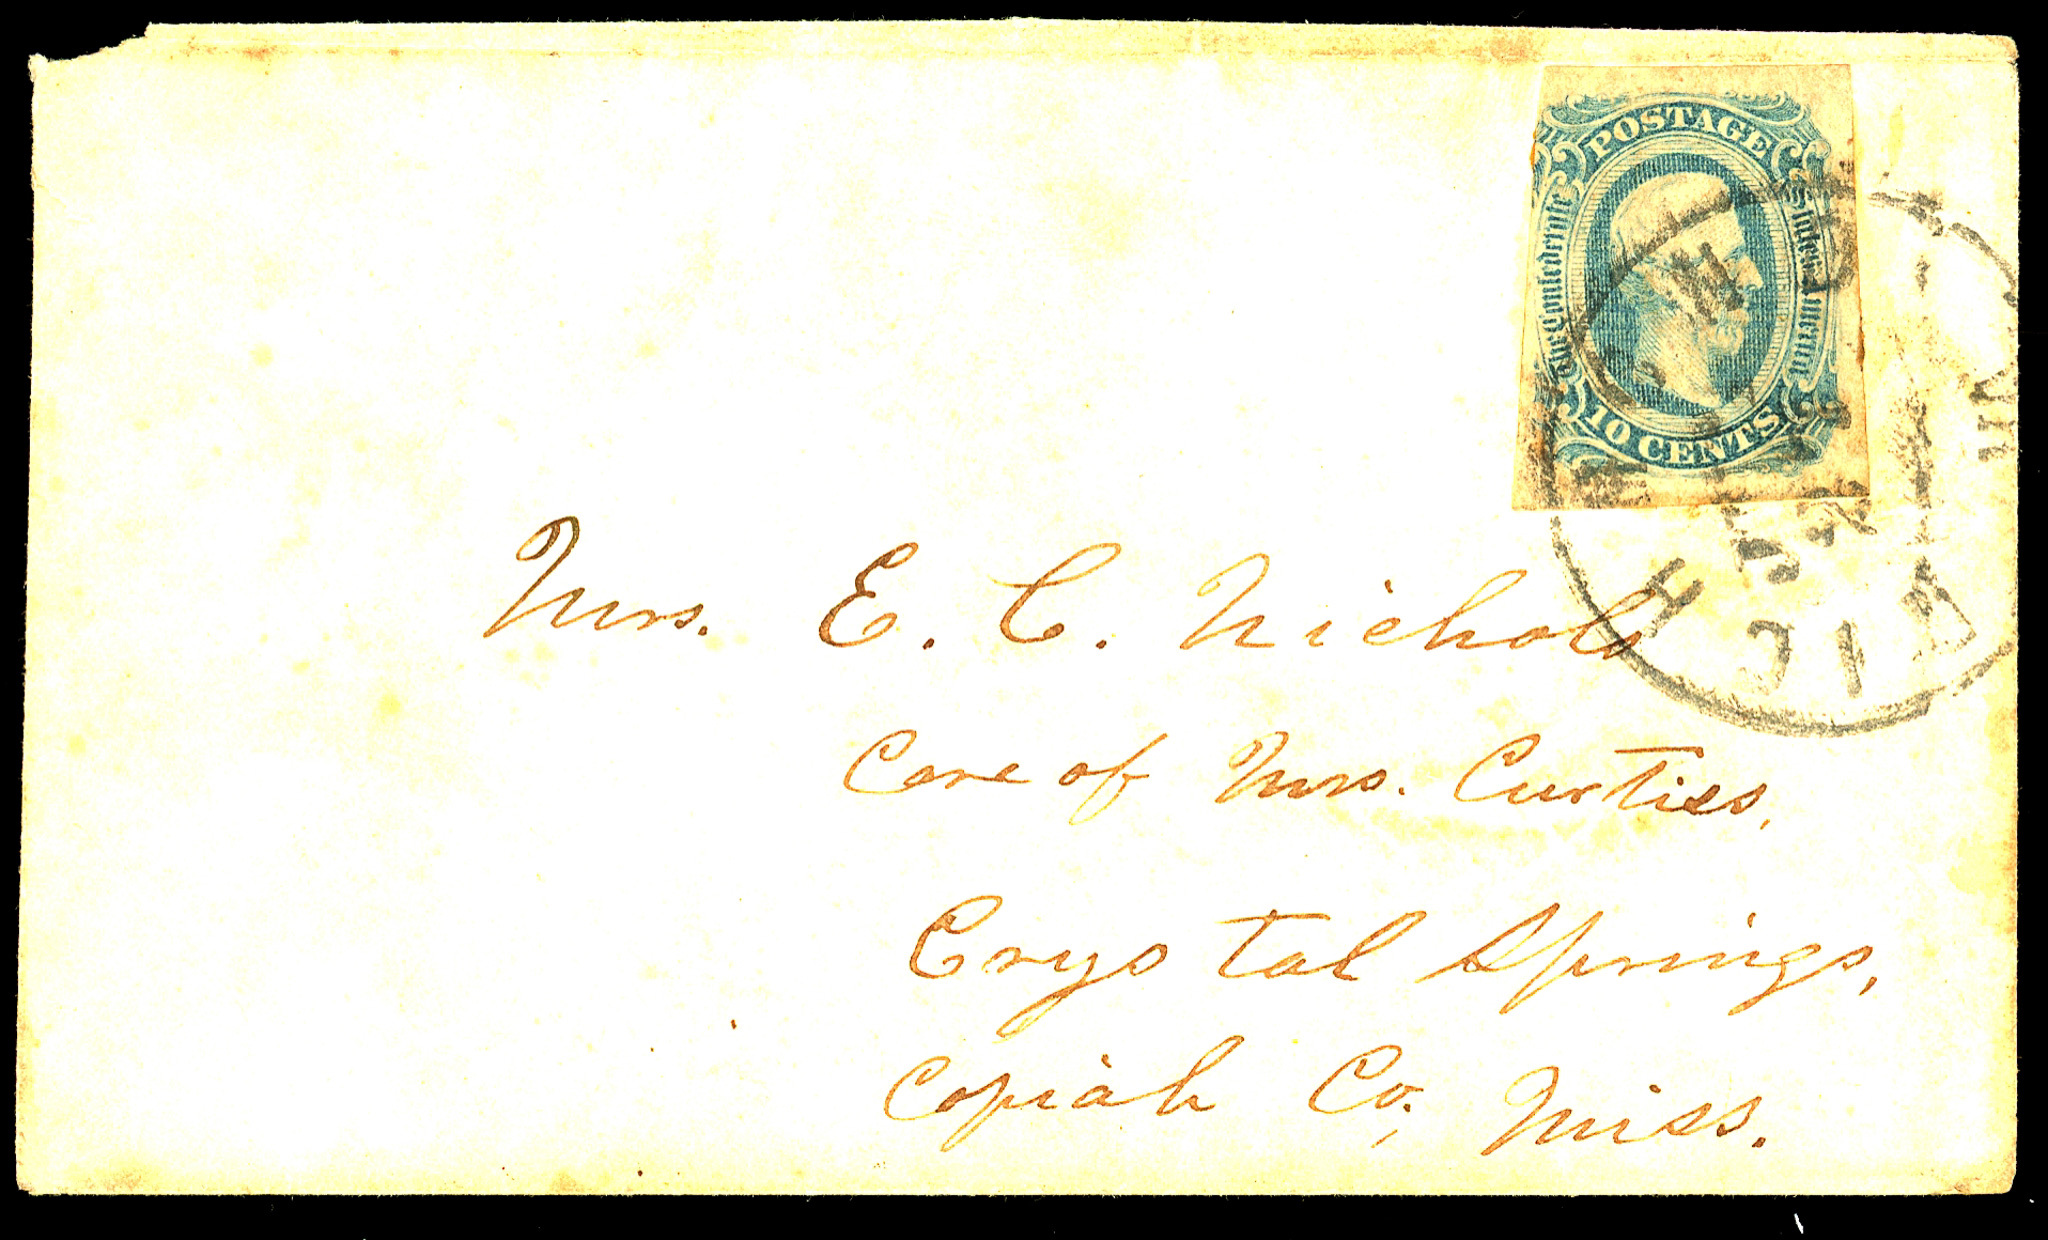 POSTAGE
The Confederate States of America
10 CENTS
Mrs. E. C. Nichols
Care of Mrs. Curtiss,
Crystal Springs,
Copiah Co., Miss.